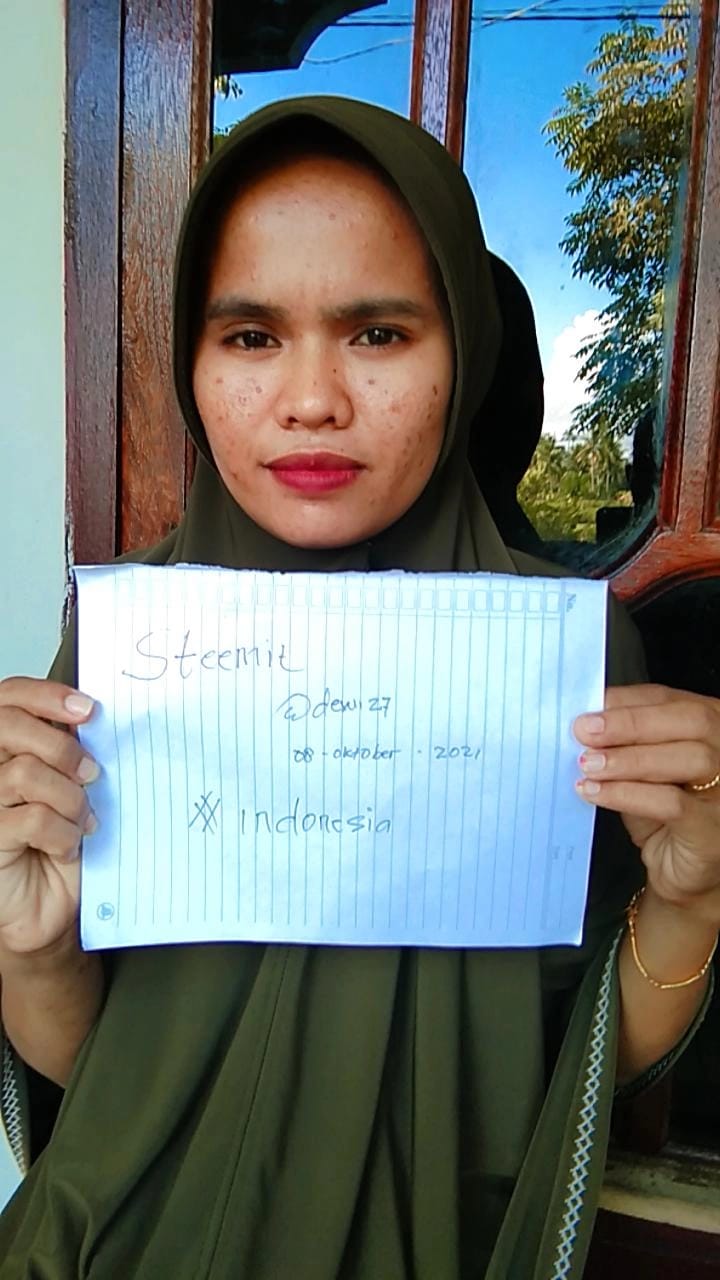 Steemit
@dewi27
08 - oktober - 2021
# Indonesia
No.